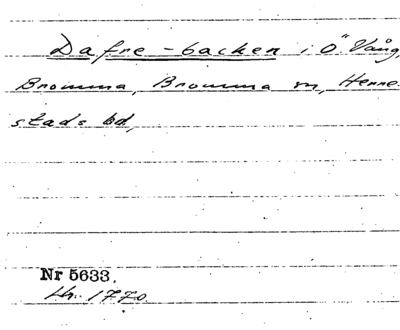 Dafre-backen i Ö. Vång,
Bromma, Bromma sn, Herre-
stads hd,
Nr 5633.
Hn. 1770